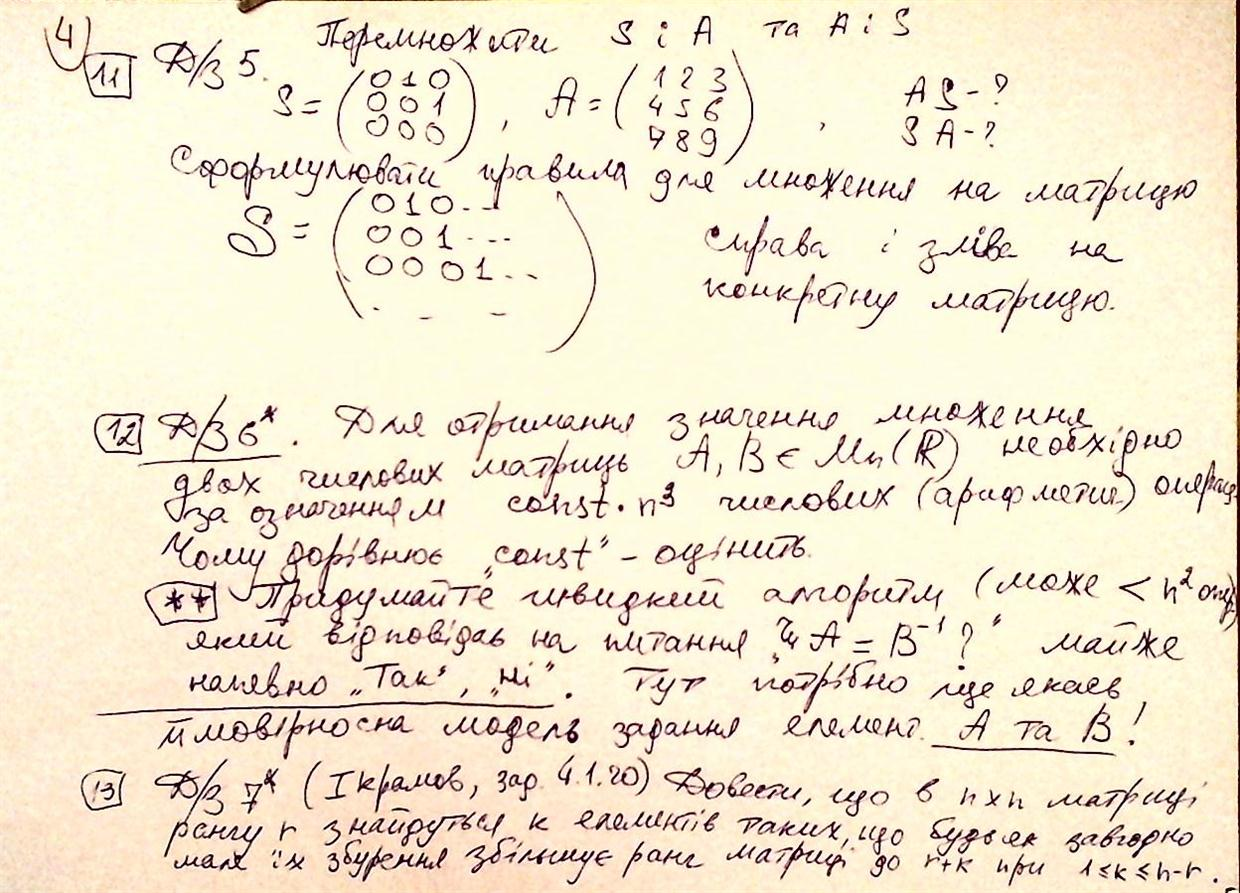 4
11 Д/з 5. Перемножити S і A та A і S
S = (0 1 0 0 0 1 0 0 0), A = (1 2 3 4 5 6 7 8 9), AS - ? SA - ?
Сформулювати правила для множення на матрицю
S = (0 1 0 ... 0 0 1 ... 0 0 0 1 .. . - -) справа і зліва на
конкретну матрицю.
12 Д/з 6*. Для отримання значення множення
двох числових матриць A, B ∈ Mn(ℝ) необхідно
за означенням const · n³ числових (арифметич)
Чому дорівнює "const" - оцініть.
** Придумайте швидкий алгоритм (може < n² опер)
який відповідає на питання "Чи A = B⁻¹?" майже
напевно "Так", "Ні". Тут потрібно ще якась
ймовірносна модель задання елемент. A та B!
13 Д/з 7* (Ікрамов, зад. 4.1.20) Довести, що в n×n матриці
рангу r знайдуться k елементів таких, що будьяк завгодно
мале їх збурення збільшує ранг матриці до r+k при 1≤k≤n-r.